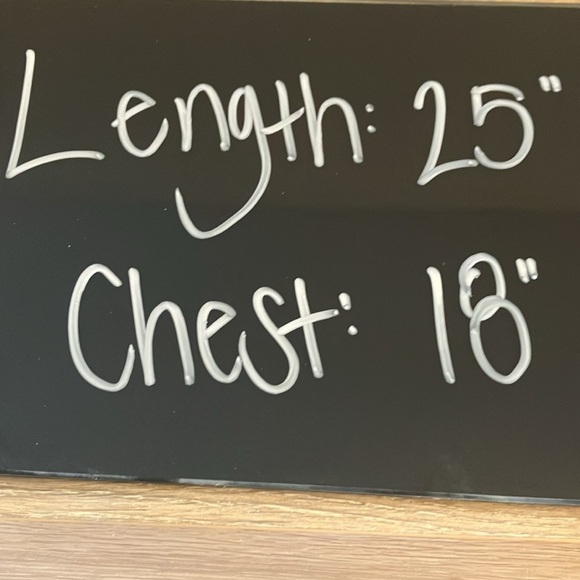 Length: 25"
Chest: 18"